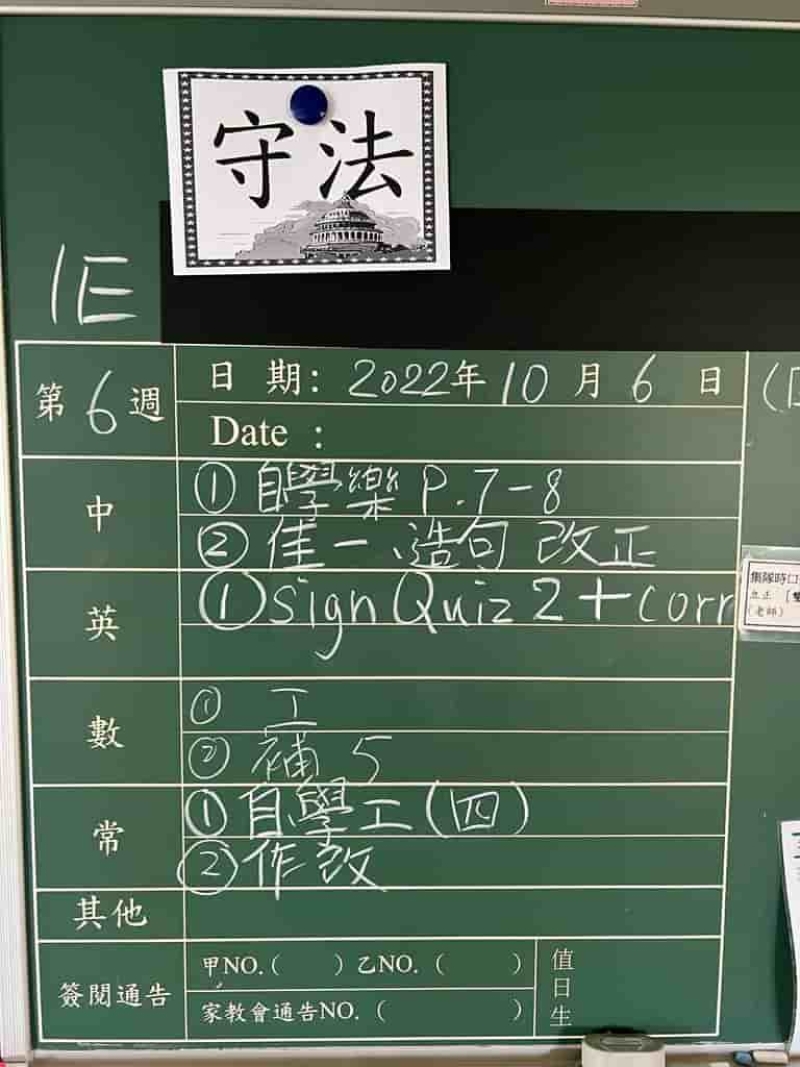 守法
1E
第6週
日 期: 2022年10月6日
Date :
中
① 自學樂 P.7-8
② 佳一、造句 改正
英
① Sign Quiz 2 + corr
數
① 工
② 補 5
常
① 自學工(四)
② 作改
其他
簽閱通告
甲NO.( ) 乙NO. ( )
家教會通告NO. ( )
值日生
集隊時口
立正
(老師)